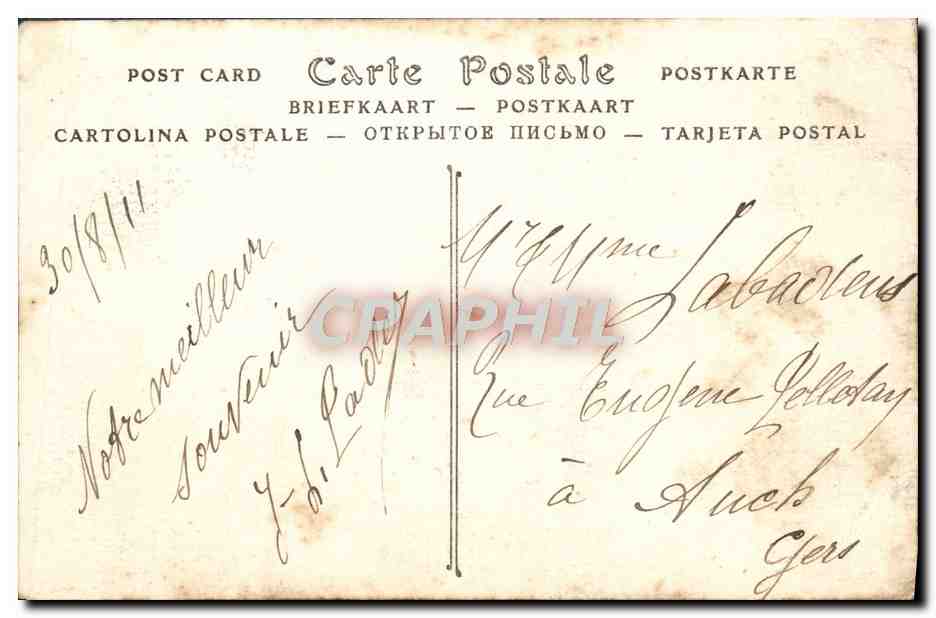 POST CARD Carte Postale POSTKARTE
BRIEFKAART — POSTKAART
CARTOLINA POSTALE — ОТКРЫТОЕ ПИСЬМО — TARJETA POSTAL
30/8/11
Notre meilleur
souvenir
CPAPHIL
Mr & Mme
Labadens
Rue Eugene
à Auch
Gers